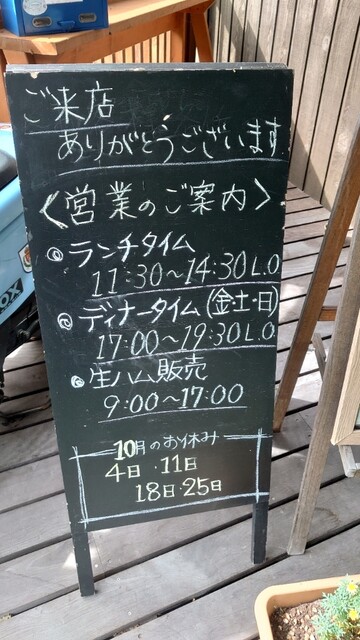 ご来店
ありがとうございます
〈営業のご案内〉
ランチタイム
11:30〜14:30 L.O
ディナータイム(金・土・日)
17:00〜19:30 L.O
生ハム販売
9:00〜17:00
10月のお休み
4日・11日
18日・25日